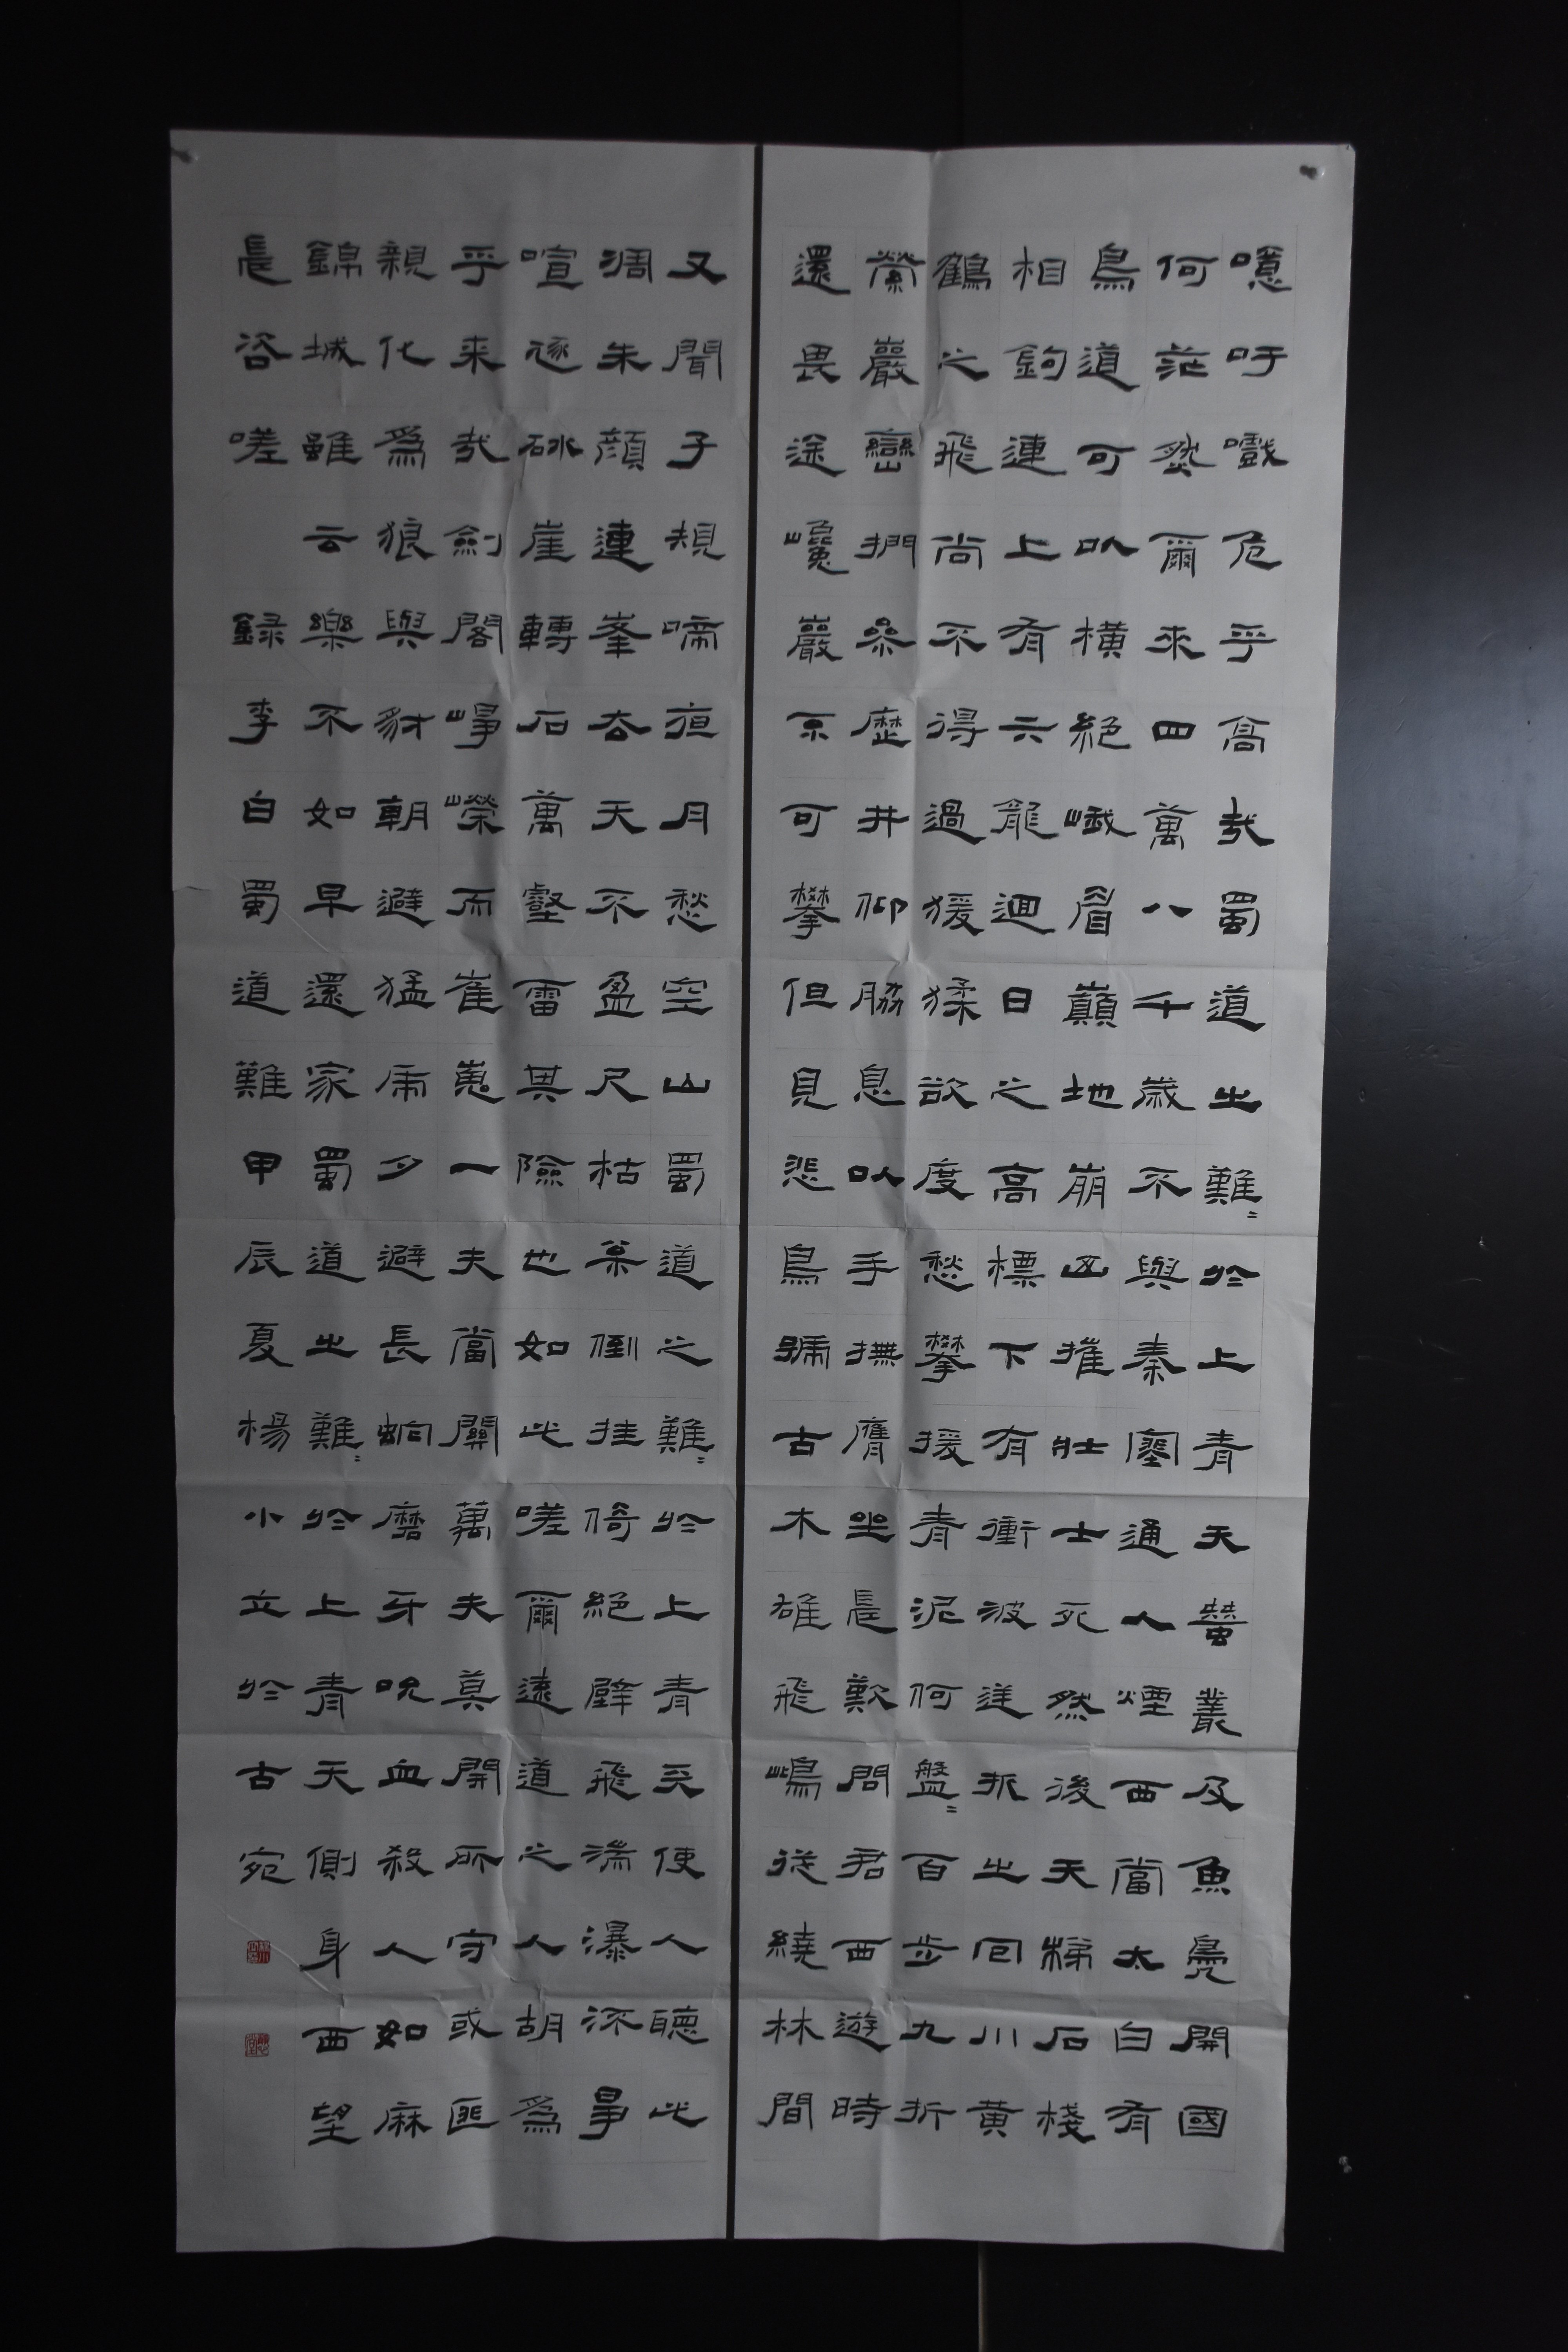 噫吁嚱危乎高哉蜀道之難〻於上青天蠶叢及魚鳧開國
何茫然爾來四萬八千歲不與秦塞通人煙西當太白有
鳥道可以橫絕峨眉巔地崩山摧壯士死然後天梯石棧
相鉤連上有六龍迴日之高標下有衝波逆折之回川黃
鶴之飛尚不得過猨猱欲度愁攀援青泥何盤〻百步九折
縈巖巒捫參歷井仰脅息以手撫膺坐長歎問君西遊時
還畏途巉巖不可攀但見悲鳥號古木雄飛鴜從繞林間
又聞子規啼夜月愁空山蜀道之難〻於上青天使人聽此
凋朱顏連峯去天不盈尺枯松倒挂倚絕壁飛湍瀑流爭
喧逐砅崖轉石萬壑雷其險也如此嗟爾遠道之人胡為
乎来哉劍閣崢嶸而崔嵬一夫當關萬夫莫開所守或匪
親化為狼與豺朝避猛虎夕避長蛇磨牙吮血殺人如麻
錦城雖云樂不如早還家蜀道之難〻於上青天側身西望
長咨嗟 録李白蜀道難甲辰夏楊小立於古宛